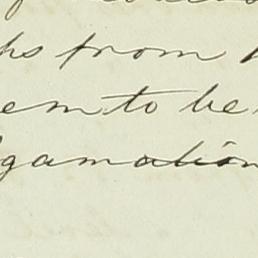 hs from
em to be
gamation